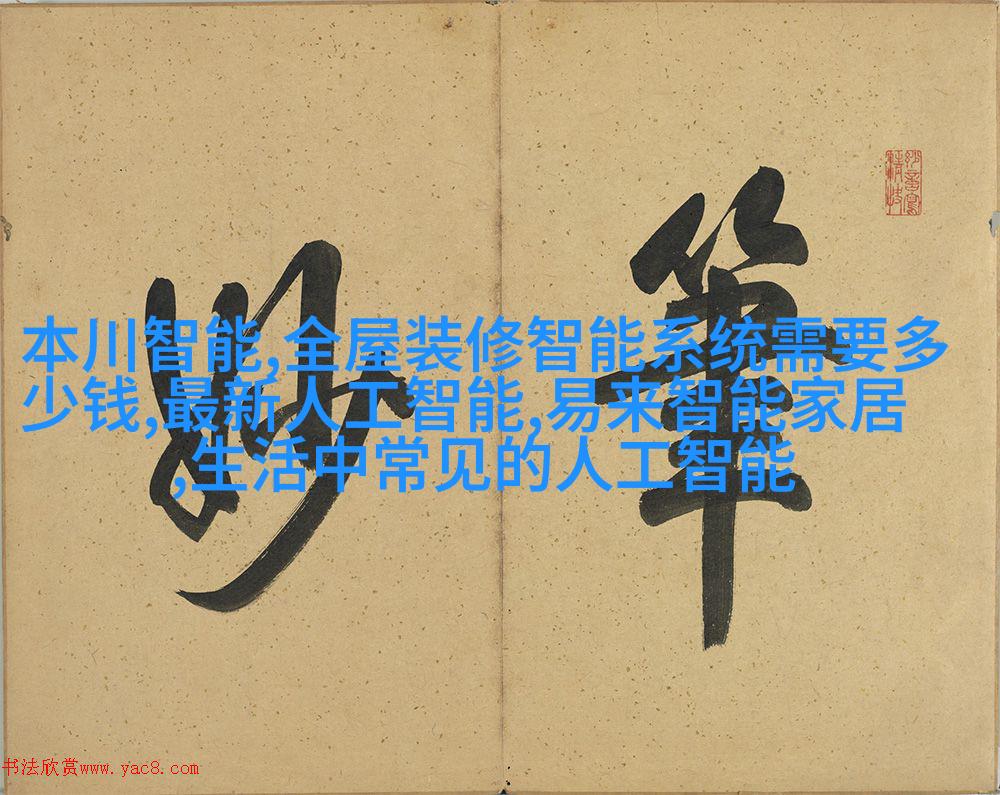 筆
妙
本川智能,全屋装修智能系统需要多
少钱,最新人工智能,易来智能家居
,生活中常见的人工智能
书法欣赏www.yac8.com